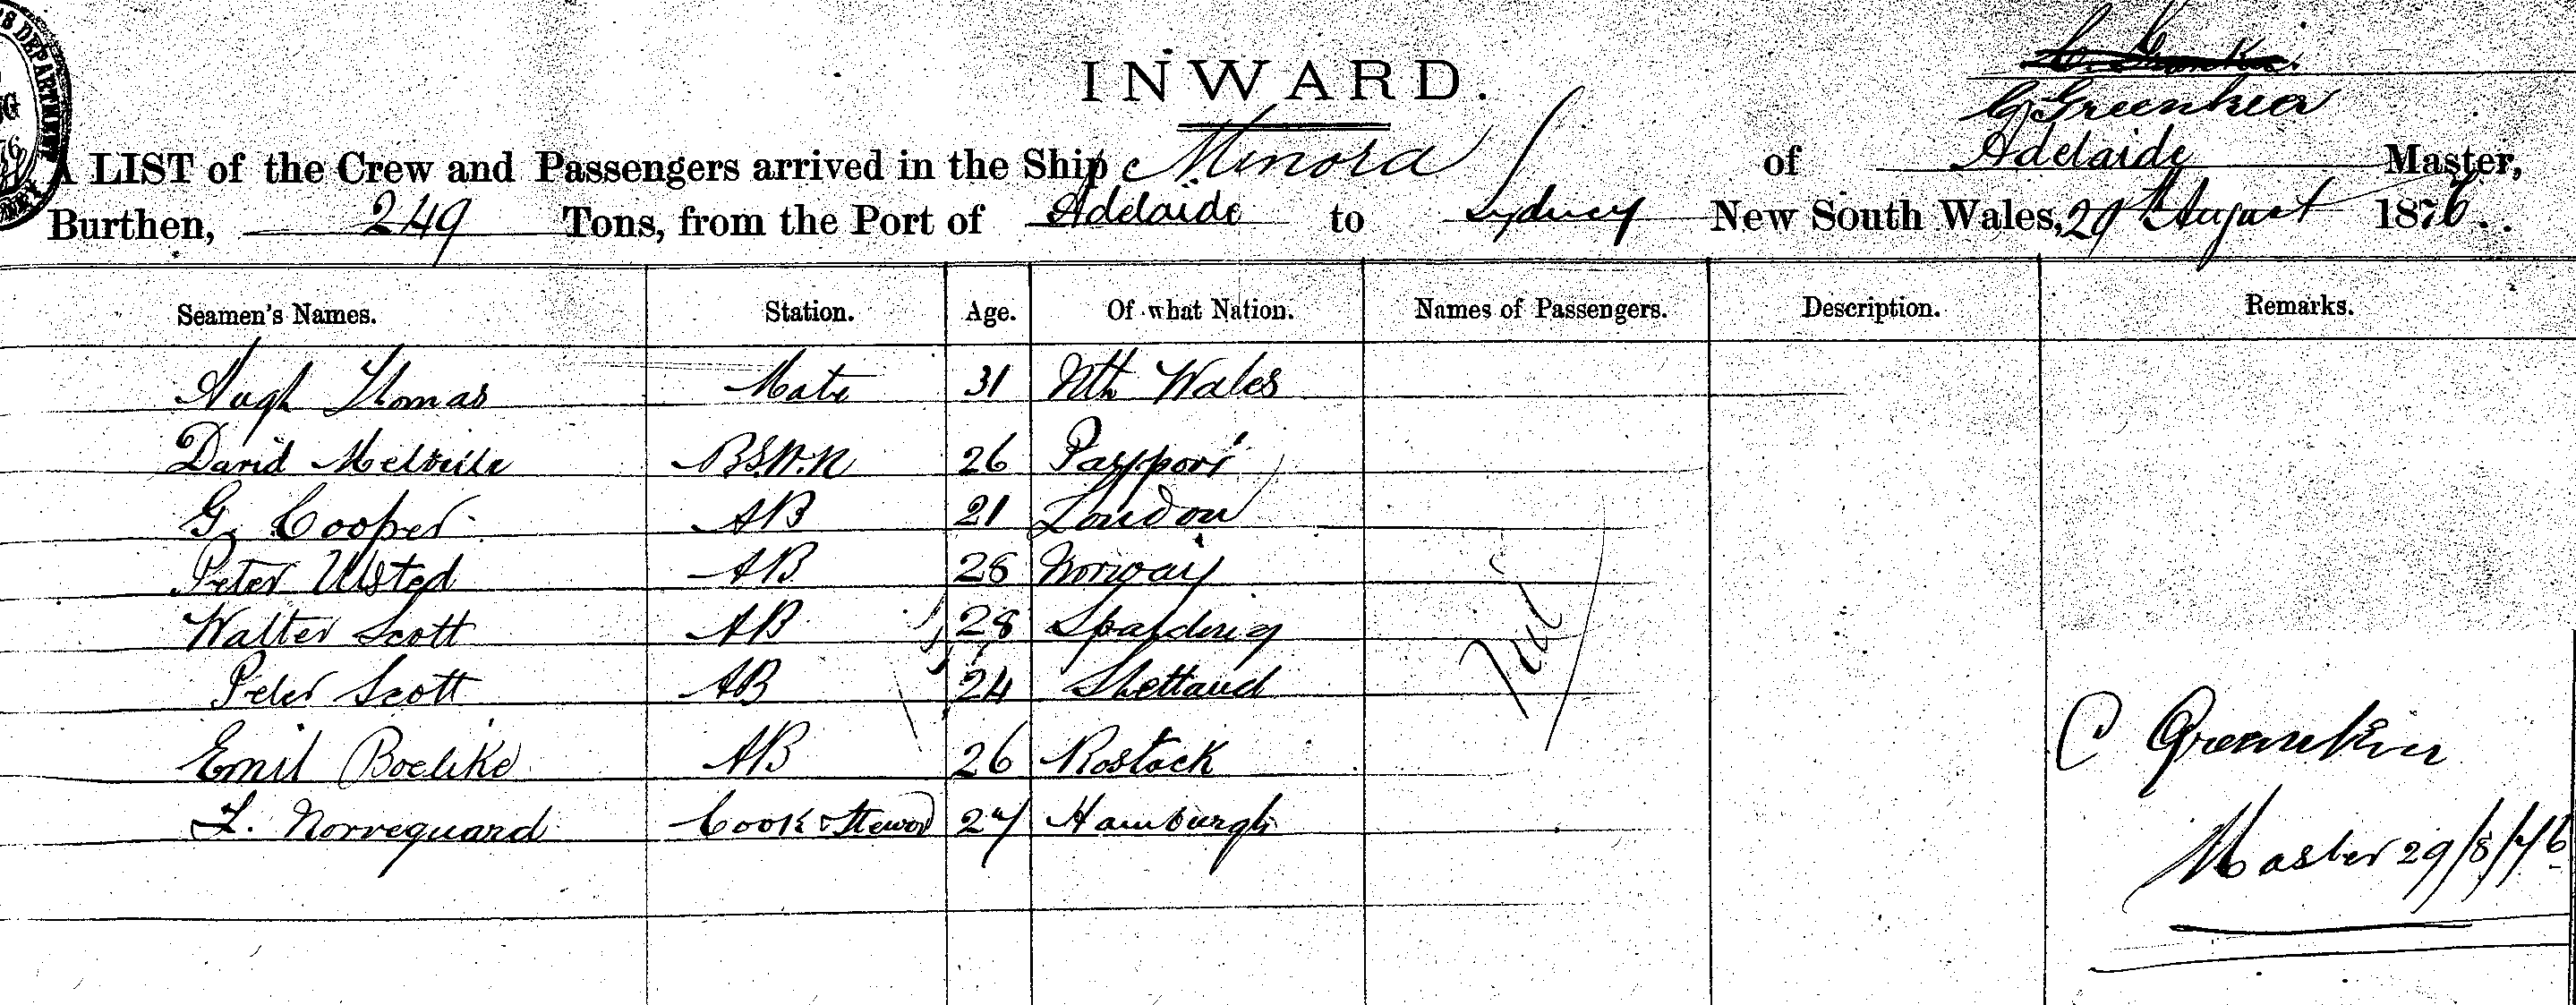 INWARD.
C Greenken
A LIST of the Crew and Passengers arrived in the Ship Minora of Adelaide Master,
Burthen, 249 Tons, from the Port of Adelaide to Sydney New South Wales, 29th August 1876.
Seamen's Names. Station. Age. Of what Nation. Names of Passengers. Description. Remarks.
Hugh Thomas Mate 31 Nth Wales
David Melville BSWN 26 
G. Cooper AB 21 London
Peter Ulsted AB 28 Norway
Walter Scott AB 28 Spalding
Peter Scott AB 24 Shetland
Nil
Emil Boelike AB 26 Rostock
F. Norreguard Cook & Steward 27 Hamburgh
C
Master 29/8/76